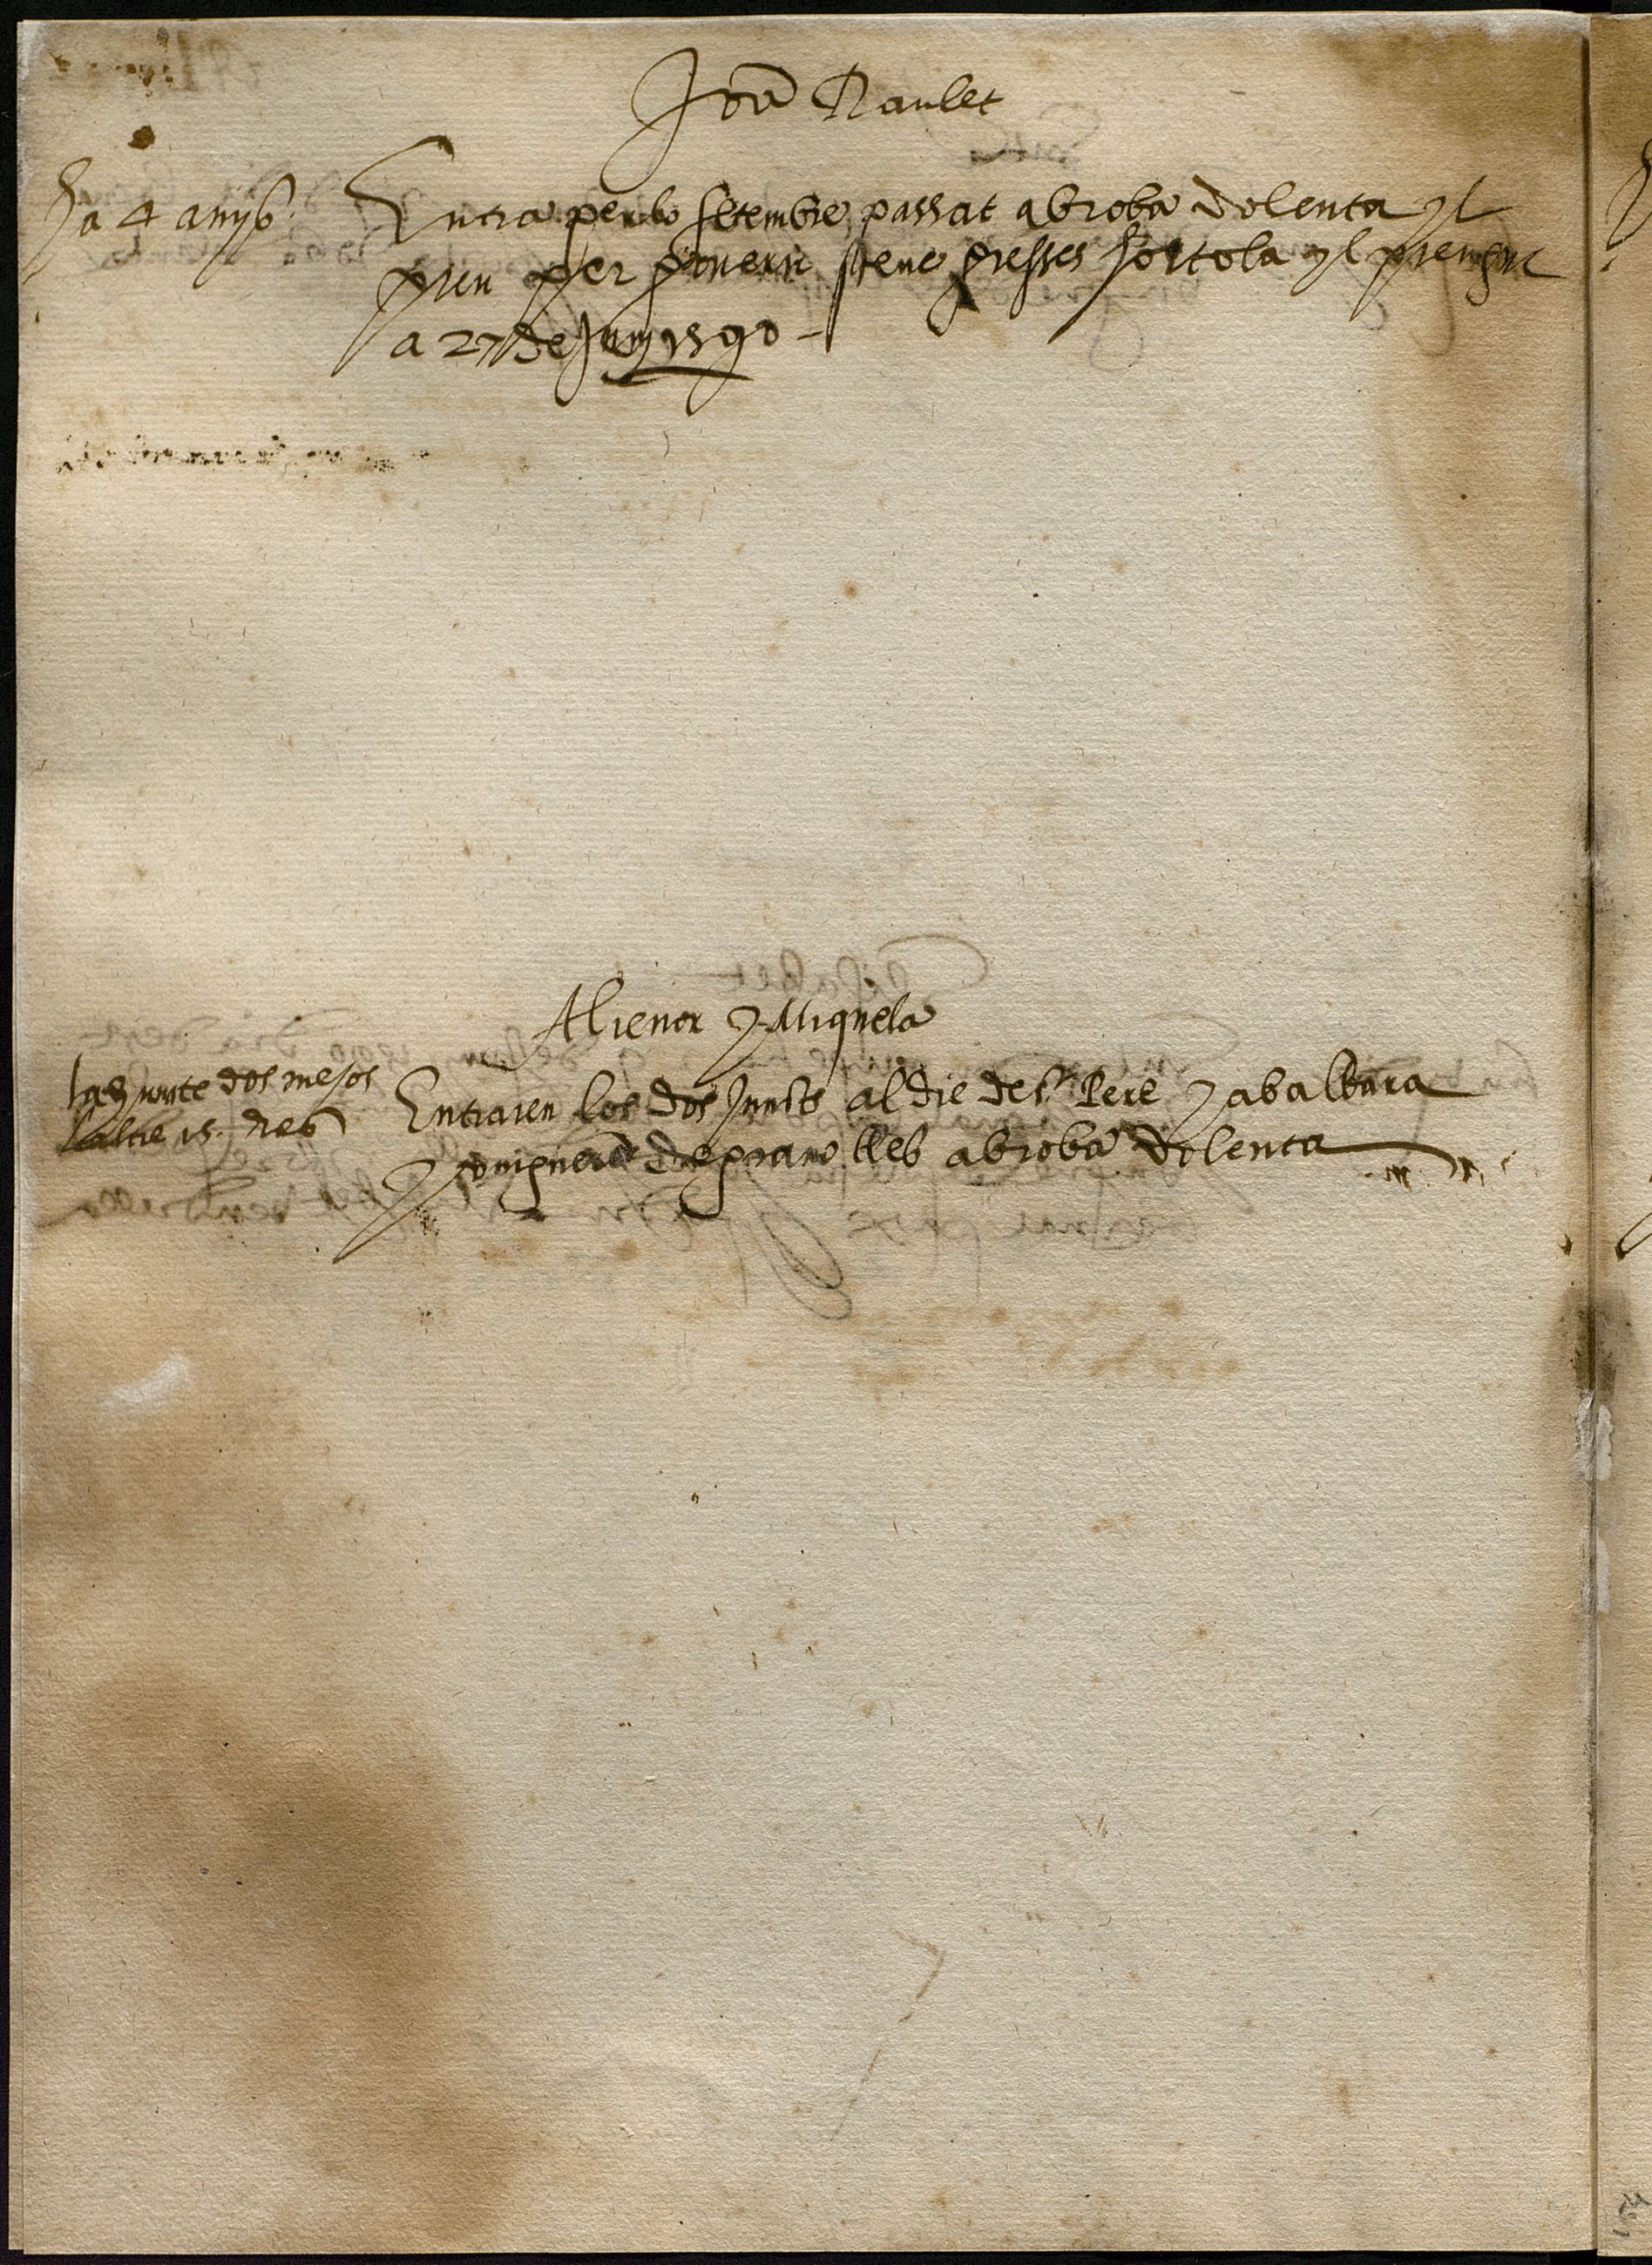 Joã Naulet
Ha 4 anys
Entra per lo setembre passat ab roba dolenta yl
pren per fer Steue gresses hortola yl prengue
a 27 de Juny 1590
Alienor y Miquela
la y dos mesos
laltre 15. dies
Entraren los dos junts al die de s.t Pere
y vingueren de ab roba dolenta